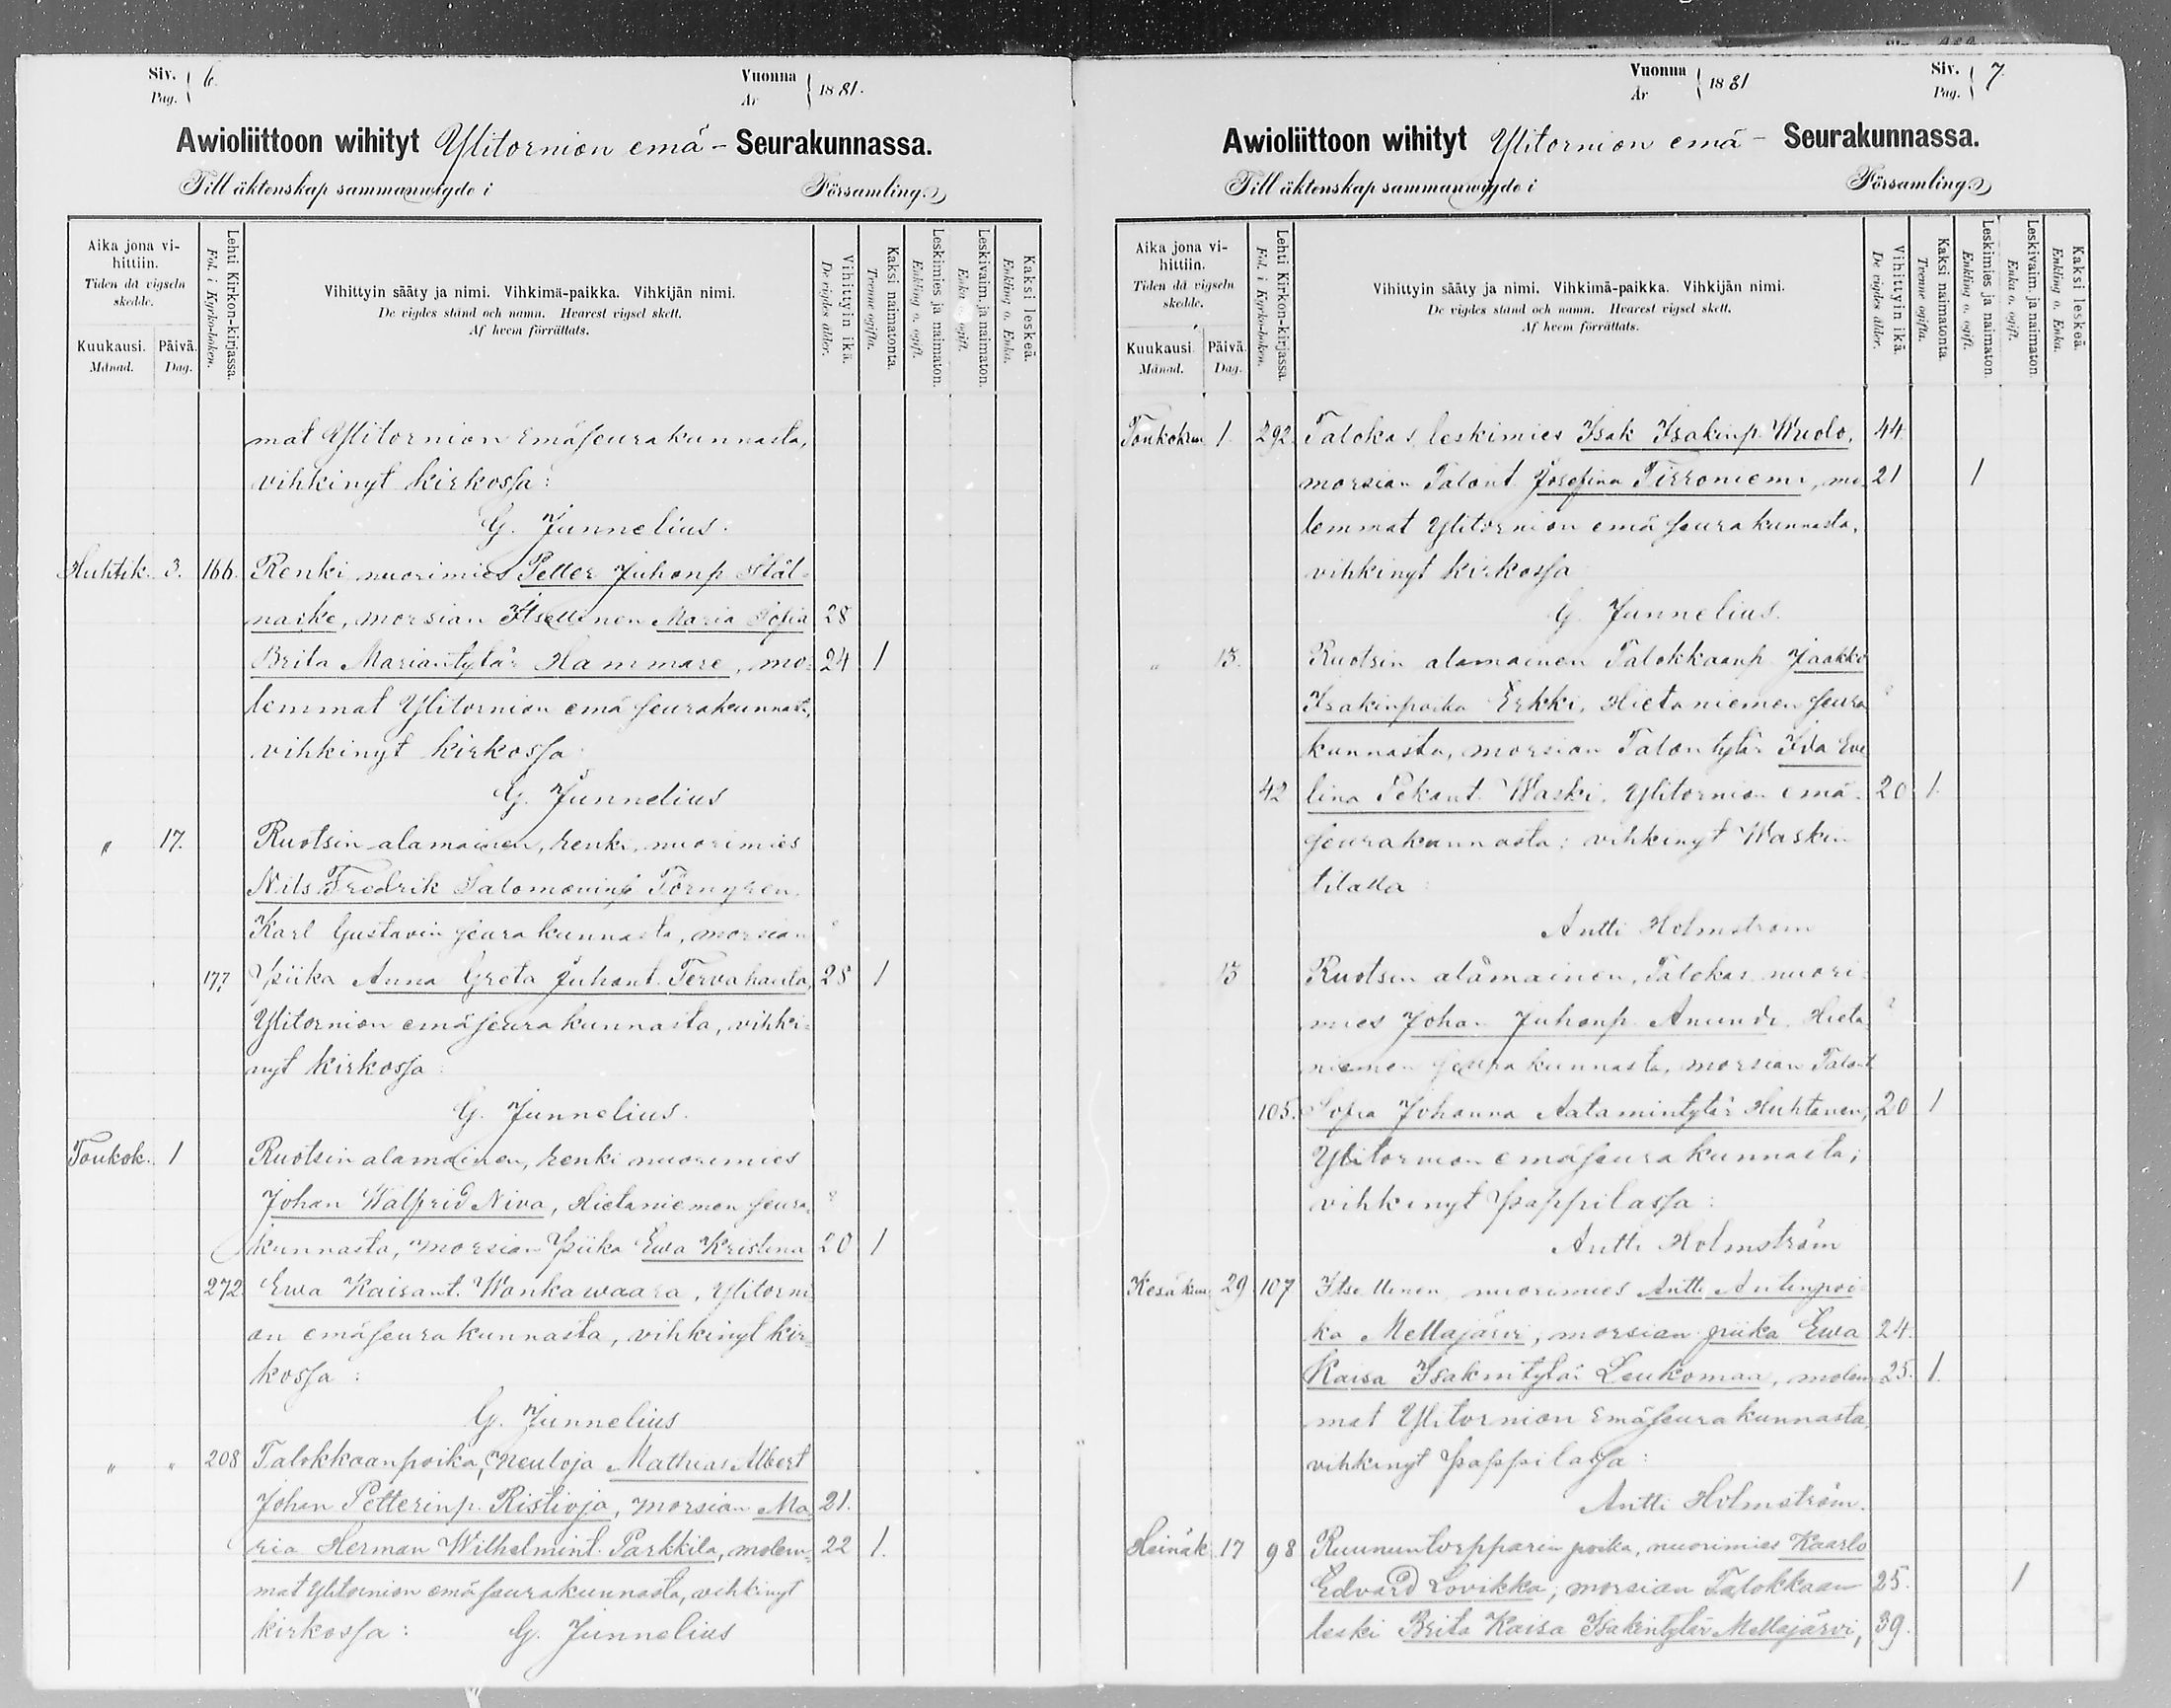 Siv. 6. Vuonna 1881.
Pag. Ar
Awioliittoon wihityt Ylitornion emä- Seurakunnassa.
Till äktenskap sammanwigde i Församling.
Aika jona vi-
hittiin.
Tiden då vigseln
skedde.
Kuukausi. Päivä.
Månad. Dag.
Lehti Kirkon-kirjassa.
Fol. i Kyrko-boken.
Vihittyin sääty ja nimi. Vihkimä-paikka. Vihkijän nimi.
De vigdes stånd och namn. Hvarest vigsel skett.
Af hvem förrättats.
Vihittyin ikä.
De vigdes ålder.
Kaksi naimatonta.
Trenne ogifta.
Leskimies ja naimaton.
Enkling o. ogift.
Leskivaim. ja naimaton.
Enka o. ogift.
Kaksi leskeä.
Enkling o. Enka.
mat Ylitornion emäseurakunnasta,
vihkinyt kirkossa:
G. Junnelius.
Huhtik. 3. 166. Renki nuorimies Petter Juhonp
naske, morsian Itsellinen Maria Sofia 28
Brita Mariantytär Hammare, mo- 24 1
lemmat Ylitornion emäseurakunnast.,
vihkinyt kirkossa
G. Junnelius
" 17. Ruotsin alamainen, renki, nuorimies
Nils Fredrik Salomoninp Törngren
Karl Gustavin seurakunnasta, morsian ?
177 Piika Anna Greta Juhont. Tervahauta, 28 1
Ylitornion emäseurakunnasta, vihki-
nyt kirkossa:
G. Junnelius.
Toukok. 1 Ruotsin alamainen, renki nuorimies
Johan Walfrid Niva, Hietaniemen seura- ?
kunnasta, morsian Piika Ewa Kristina 20 1
272. Ewa Kaisant. Wankawaara, Ylitorni-
on emäseurakunnasta, vihkinyt kir-
kossa:
G. Junnelius
" " 208 Talokkaanpoika, neuloja Mathias Albert
Johan Petterinp. Ristioja, morsian Ma- 21.
ria Herman Wilhelmint. Parkkila, molem- 22 1.
mat Ylitornion emäseurakunnasta, vihkinyt
kirkossa: G. Junnelius
Vuonna 1881 Siv. 7.
Ar Pag.
Awioliittoon wihityt Ylitornion emä- Seurakunnassa.
Till äktenskap sammanwigde i Församling.
Aika jona vi-
hittiin.
Tiden då vigseln
skedde.
Kuukausi. Päivä.
Månad. Dag.
Lehti Kirkon-kirjassa.
Fol. i Kyrko-boken.
Vihittyin sääty ja nimi. Vihkimä-paikka. Vihkijän nimi.
De vigdes stånd och namn. Hvarest vigsel skett.
Af hvem förrättats.
Vihittyin ikä.
De vigdes ålder.
Kaksi naimatonta.
Trenne ogifta.
Leskimies ja naimaton.
Enkling o. ogift.
Leskivaim. ja naimaton.
Enka o. ogift.
Kaksi leskeä.
Enkling o. Enka.
1. 292. Talokas, leskimies Isak Isakinp. Wuolo, 44
morsian Talont. Josefina Tirroniemi, mo- 21 1
lemmat Ylitornion emäseurakunnasta,
vihkinyt kirkossa
G. Junnelius.
" 15. Ruotsin alamainen Talokkaanp. Jaakko
Isakinpoika Erkki, Hietaniemen seura ?
kunnasta, morsian Talontytär Ida Eve
42 lina Pekant. Waski, Ylitornion emä- 20 1.
seurakunnasta; vihkinyt Waskin
tilalla:
Antti Holmström
15 Ruotsin alamainen, Talokas nuori-
mies Johan Juhonp. Anundi, Hieta- ?
niemen seurakunnasta, morsian Talont
105. Sofia Johanna Aatamintytär Huhtanen, 20 1
Ylitornion emäseurakunnasta;
vihkinyt Pappilassa:
Antti Holmström
Kesäkuu. 29 107 Itsellinen, nuorimies Antti Antinpoi-
ka Mellajärvi, morsian piika Ewa 24.
Kaisa Isakintytär Leukomaa, molem- 25. 1.
mat Ylitornion emäseurakunnasta,
vihkinyt Pappilassa:
Antti Holmström.
Heinäk. 17 98 Ruununtorpparin poika, nuorimies Kaarlo
Edvard Lovikka; morsian Talokkaan 25. 1
leski Brita Kaisa Isakintytär Mellajärvi, 39.